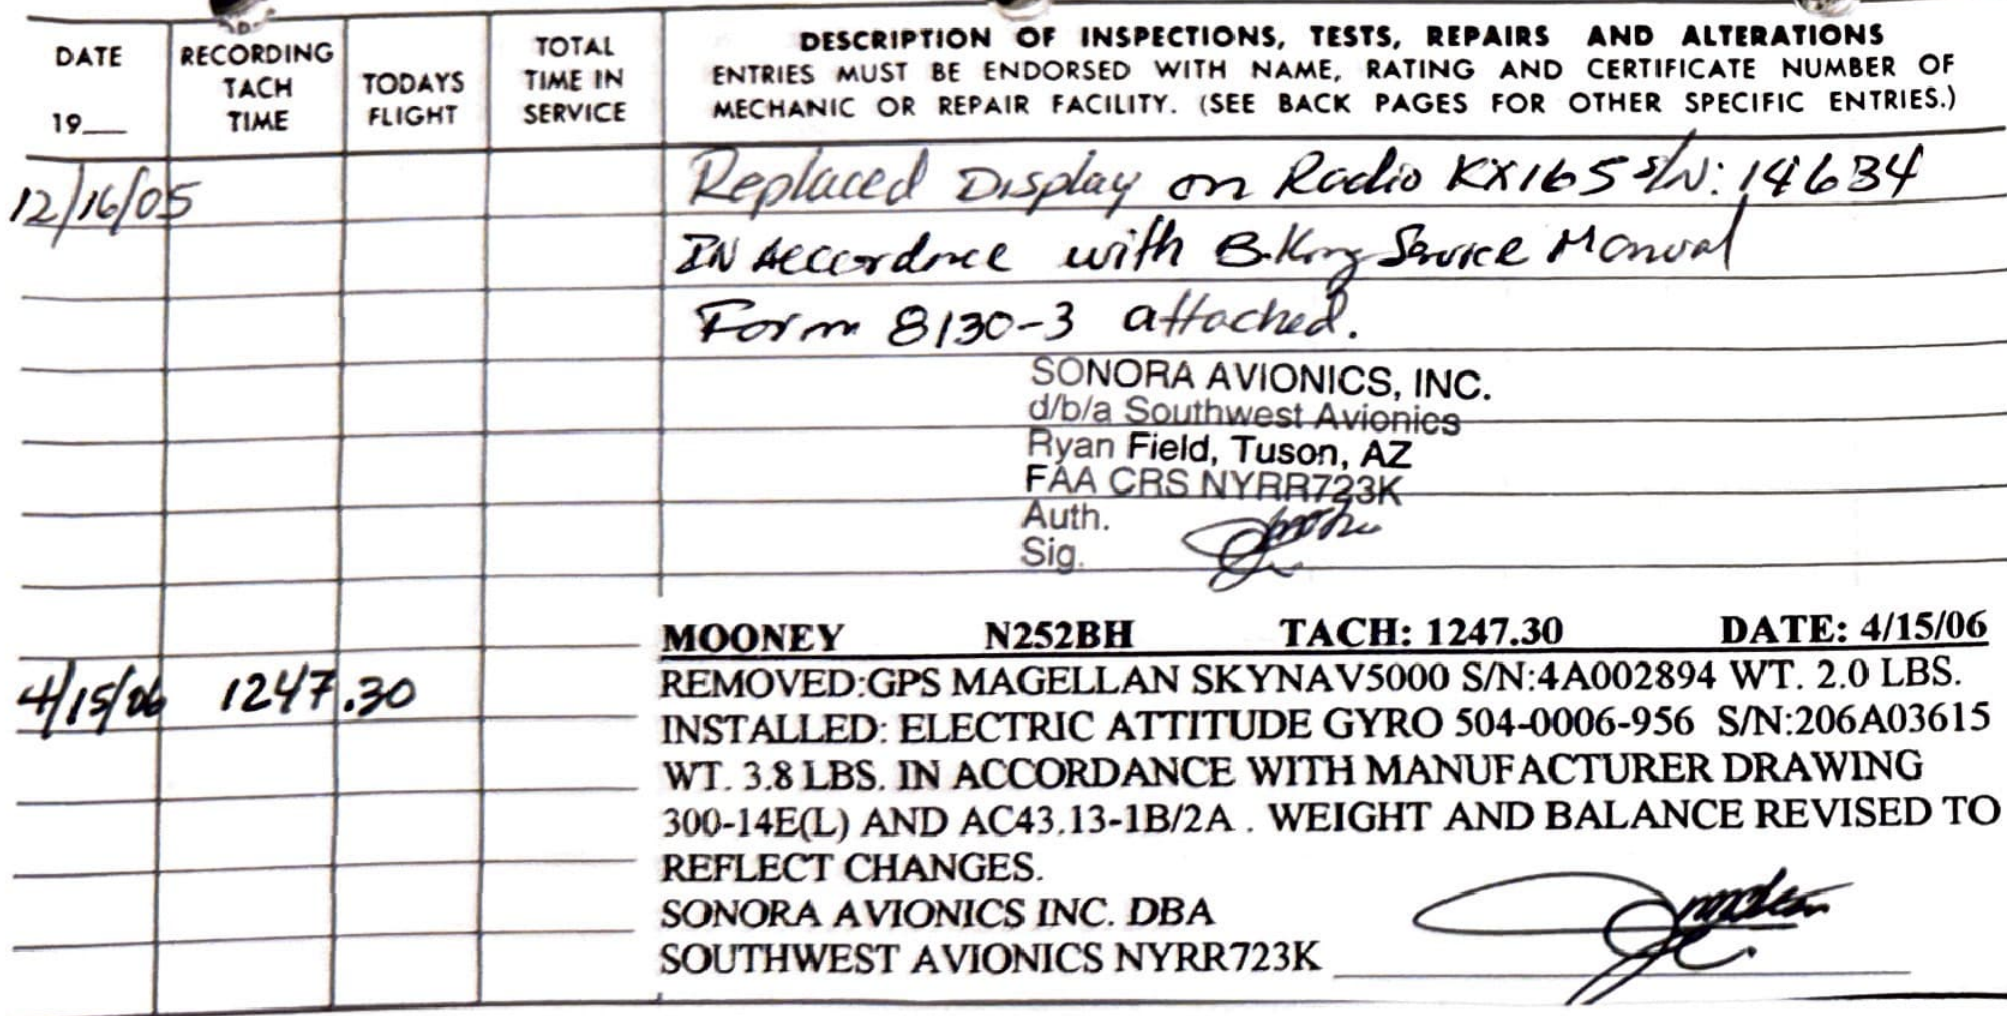 DATE
19__
RECORDING
TACH
TIME
TODAYS
FLIGHT
TOTAL
TIME IN
SERVICE
DESCRIPTION OF INSPECTIONS, TESTS, REPAIRS AND ALTERATIONS
ENTRIES MUST BE ENDORSED WITH NAME, RATING AND CERTIFICATE NUMBER OF
MECHANIC OR REPAIR FACILITY. (SEE BACK PAGES FOR OTHER SPECIFIC ENTRIES.)
12/16/05 Replaced Display on Radio KX165 S/N: 14634
IN Accordnce with B.King Service Manual
Form 8130-3 attached.
SONORA AVIONICS, INC.
d/b/a Southwest Avionics
Ryan Field, Tuson, AZ
FAA CRS NYRR723K
Auth.
Sig.
MOONEY N252BH TACH: 1247.30 DATE: 4/15/06
4/15/06 1247.30 REMOVED:GPS MAGELLAN SKYNAV5000 S/N:4A002894 WT. 2.0 LBS.
INSTALLED: ELECTRIC ATTITUDE GYRO 504-0006-956 S/N:206A03615
WT. 3.8 LBS. IN ACCORDANCE WITH MANUFACTURER DRAWING
300-14E(L) AND AC43.13-1B/2A . WEIGHT AND BALANCE REVISED TO
REFLECT CHANGES.
SONORA AVIONICS INC. DBA
SOUTHWEST AVIONICS NYRR723K